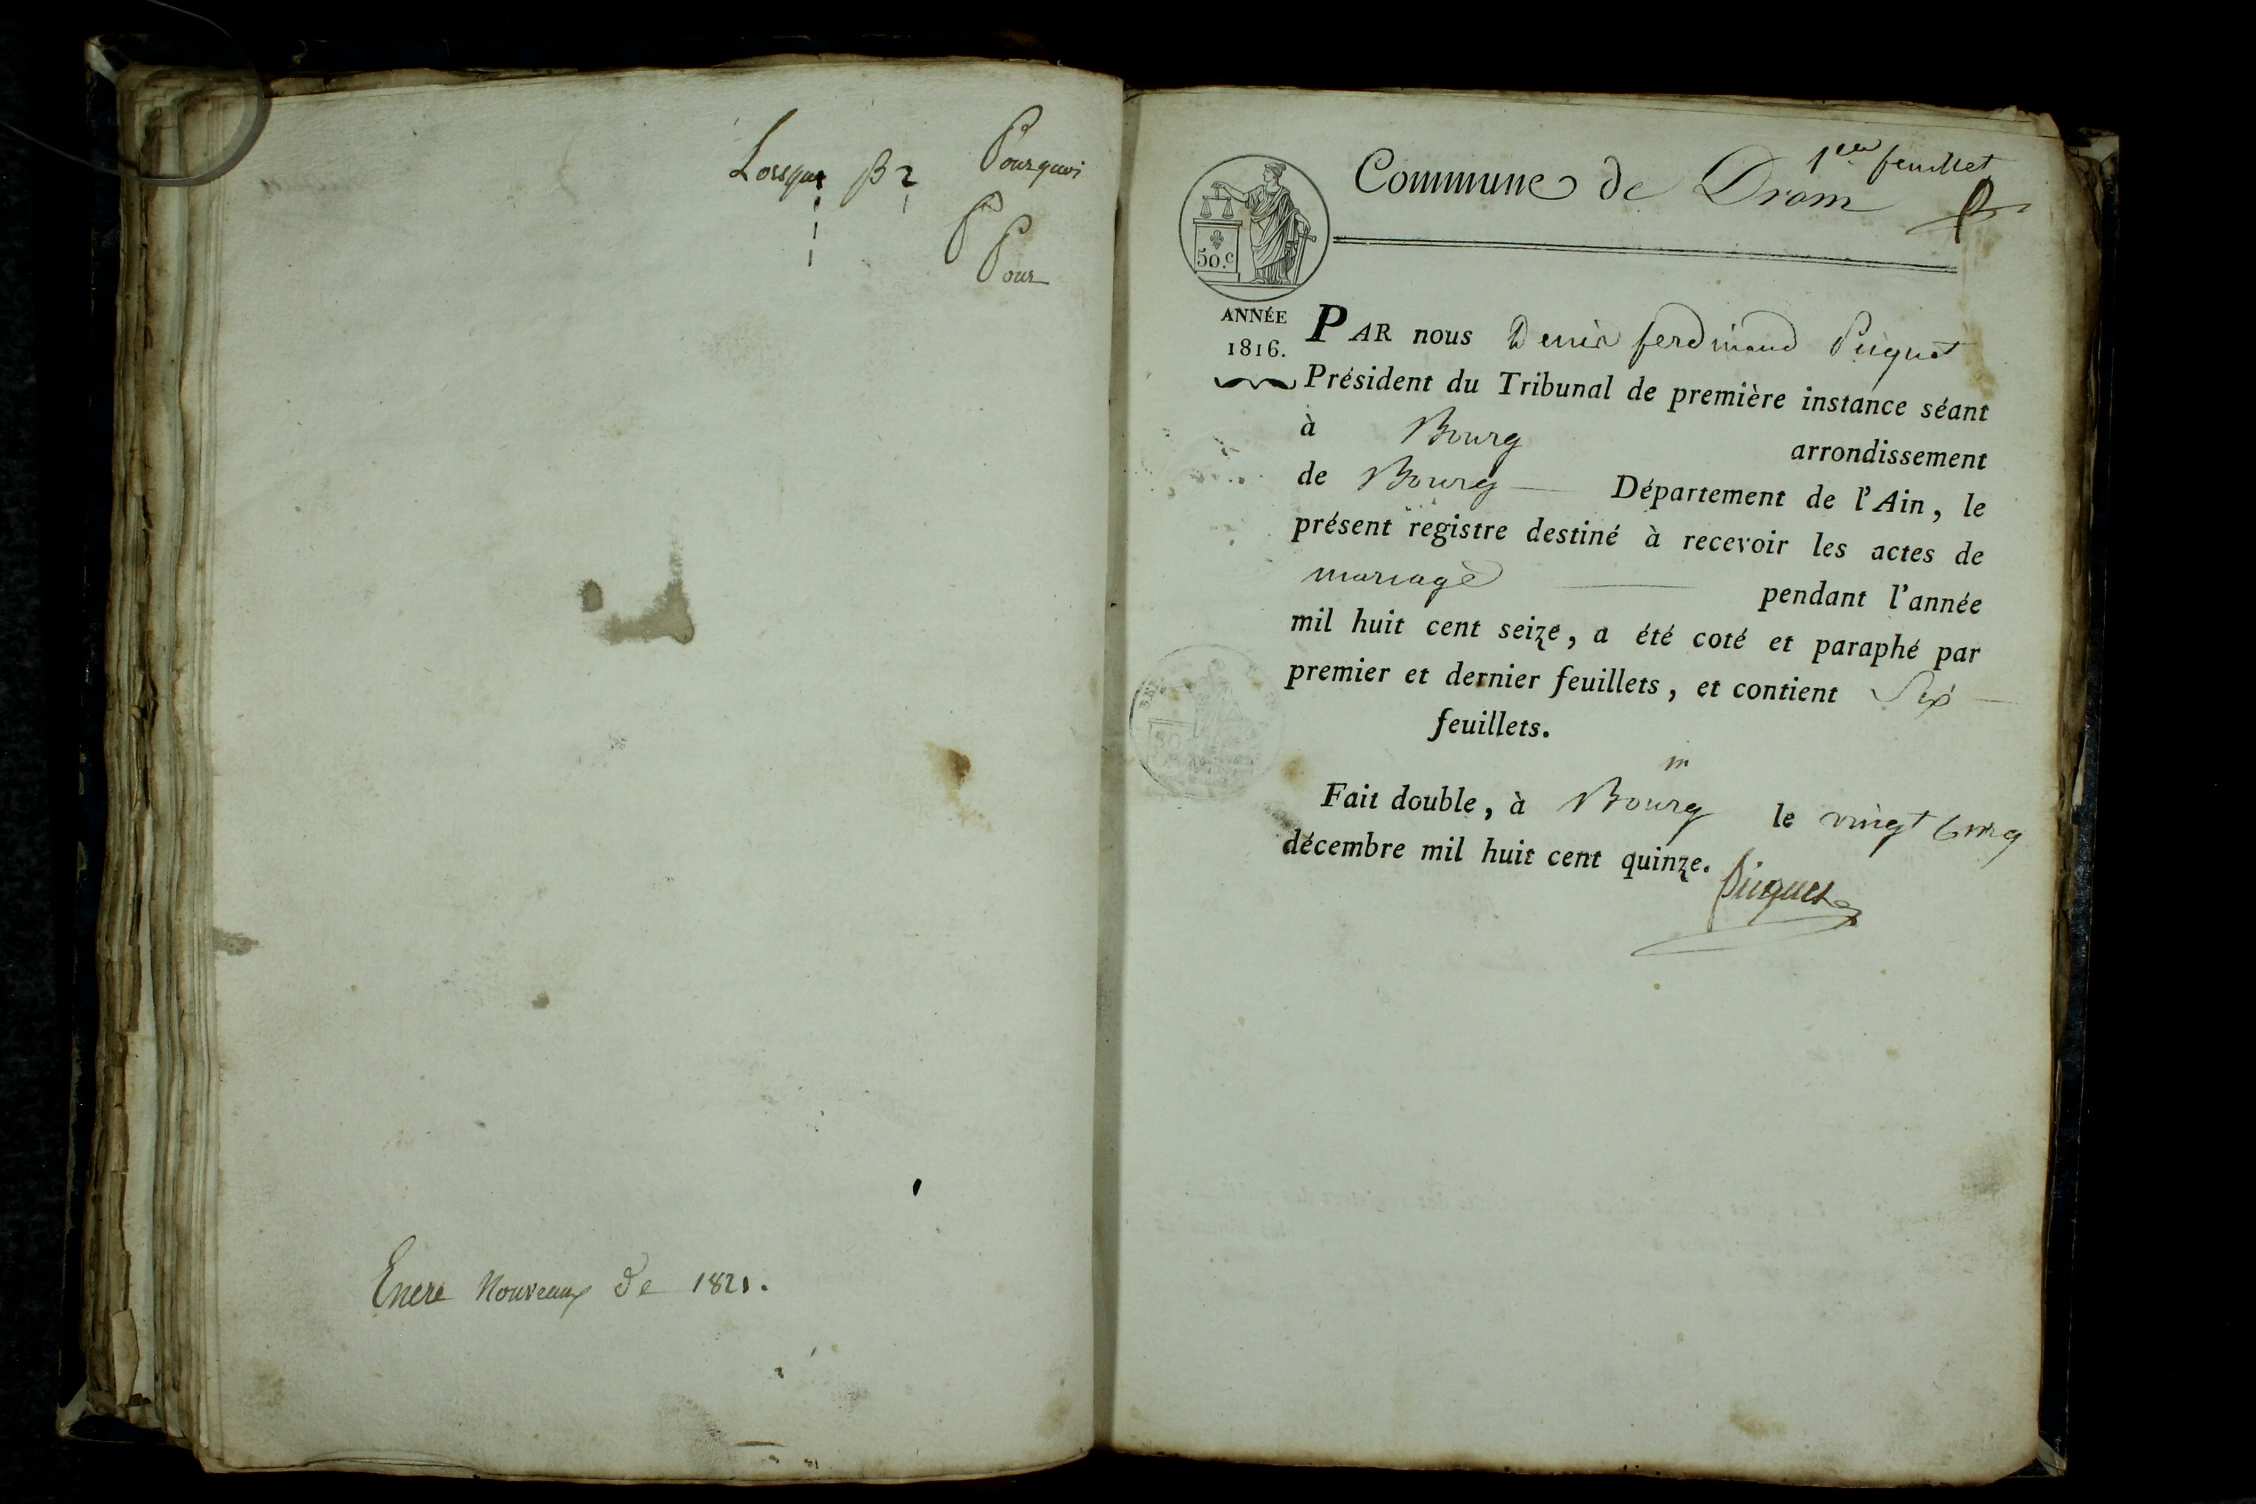 Lorsque B 2 Pourquoi
P
Pour
Encre Nouveaux de 1821.
1er feuillet
Commune de Drom
50.c
ANNÉE
1816.
PAR nous Denis ferdinand Piquet
Président du Tribunal de première instance séant
à Bourg arrondissement
de Bourg Département de l'Ain, le
présent registre destiné à recevoir les actes de
mariage pendant l'année
mil huit cent seize, a été coté et paraphé par
premier et dernier feuillets, et contient Six
feuillets.
Fait double, à Bourg le vingt cinq
décembre mil huit cent quinze.
Piquet